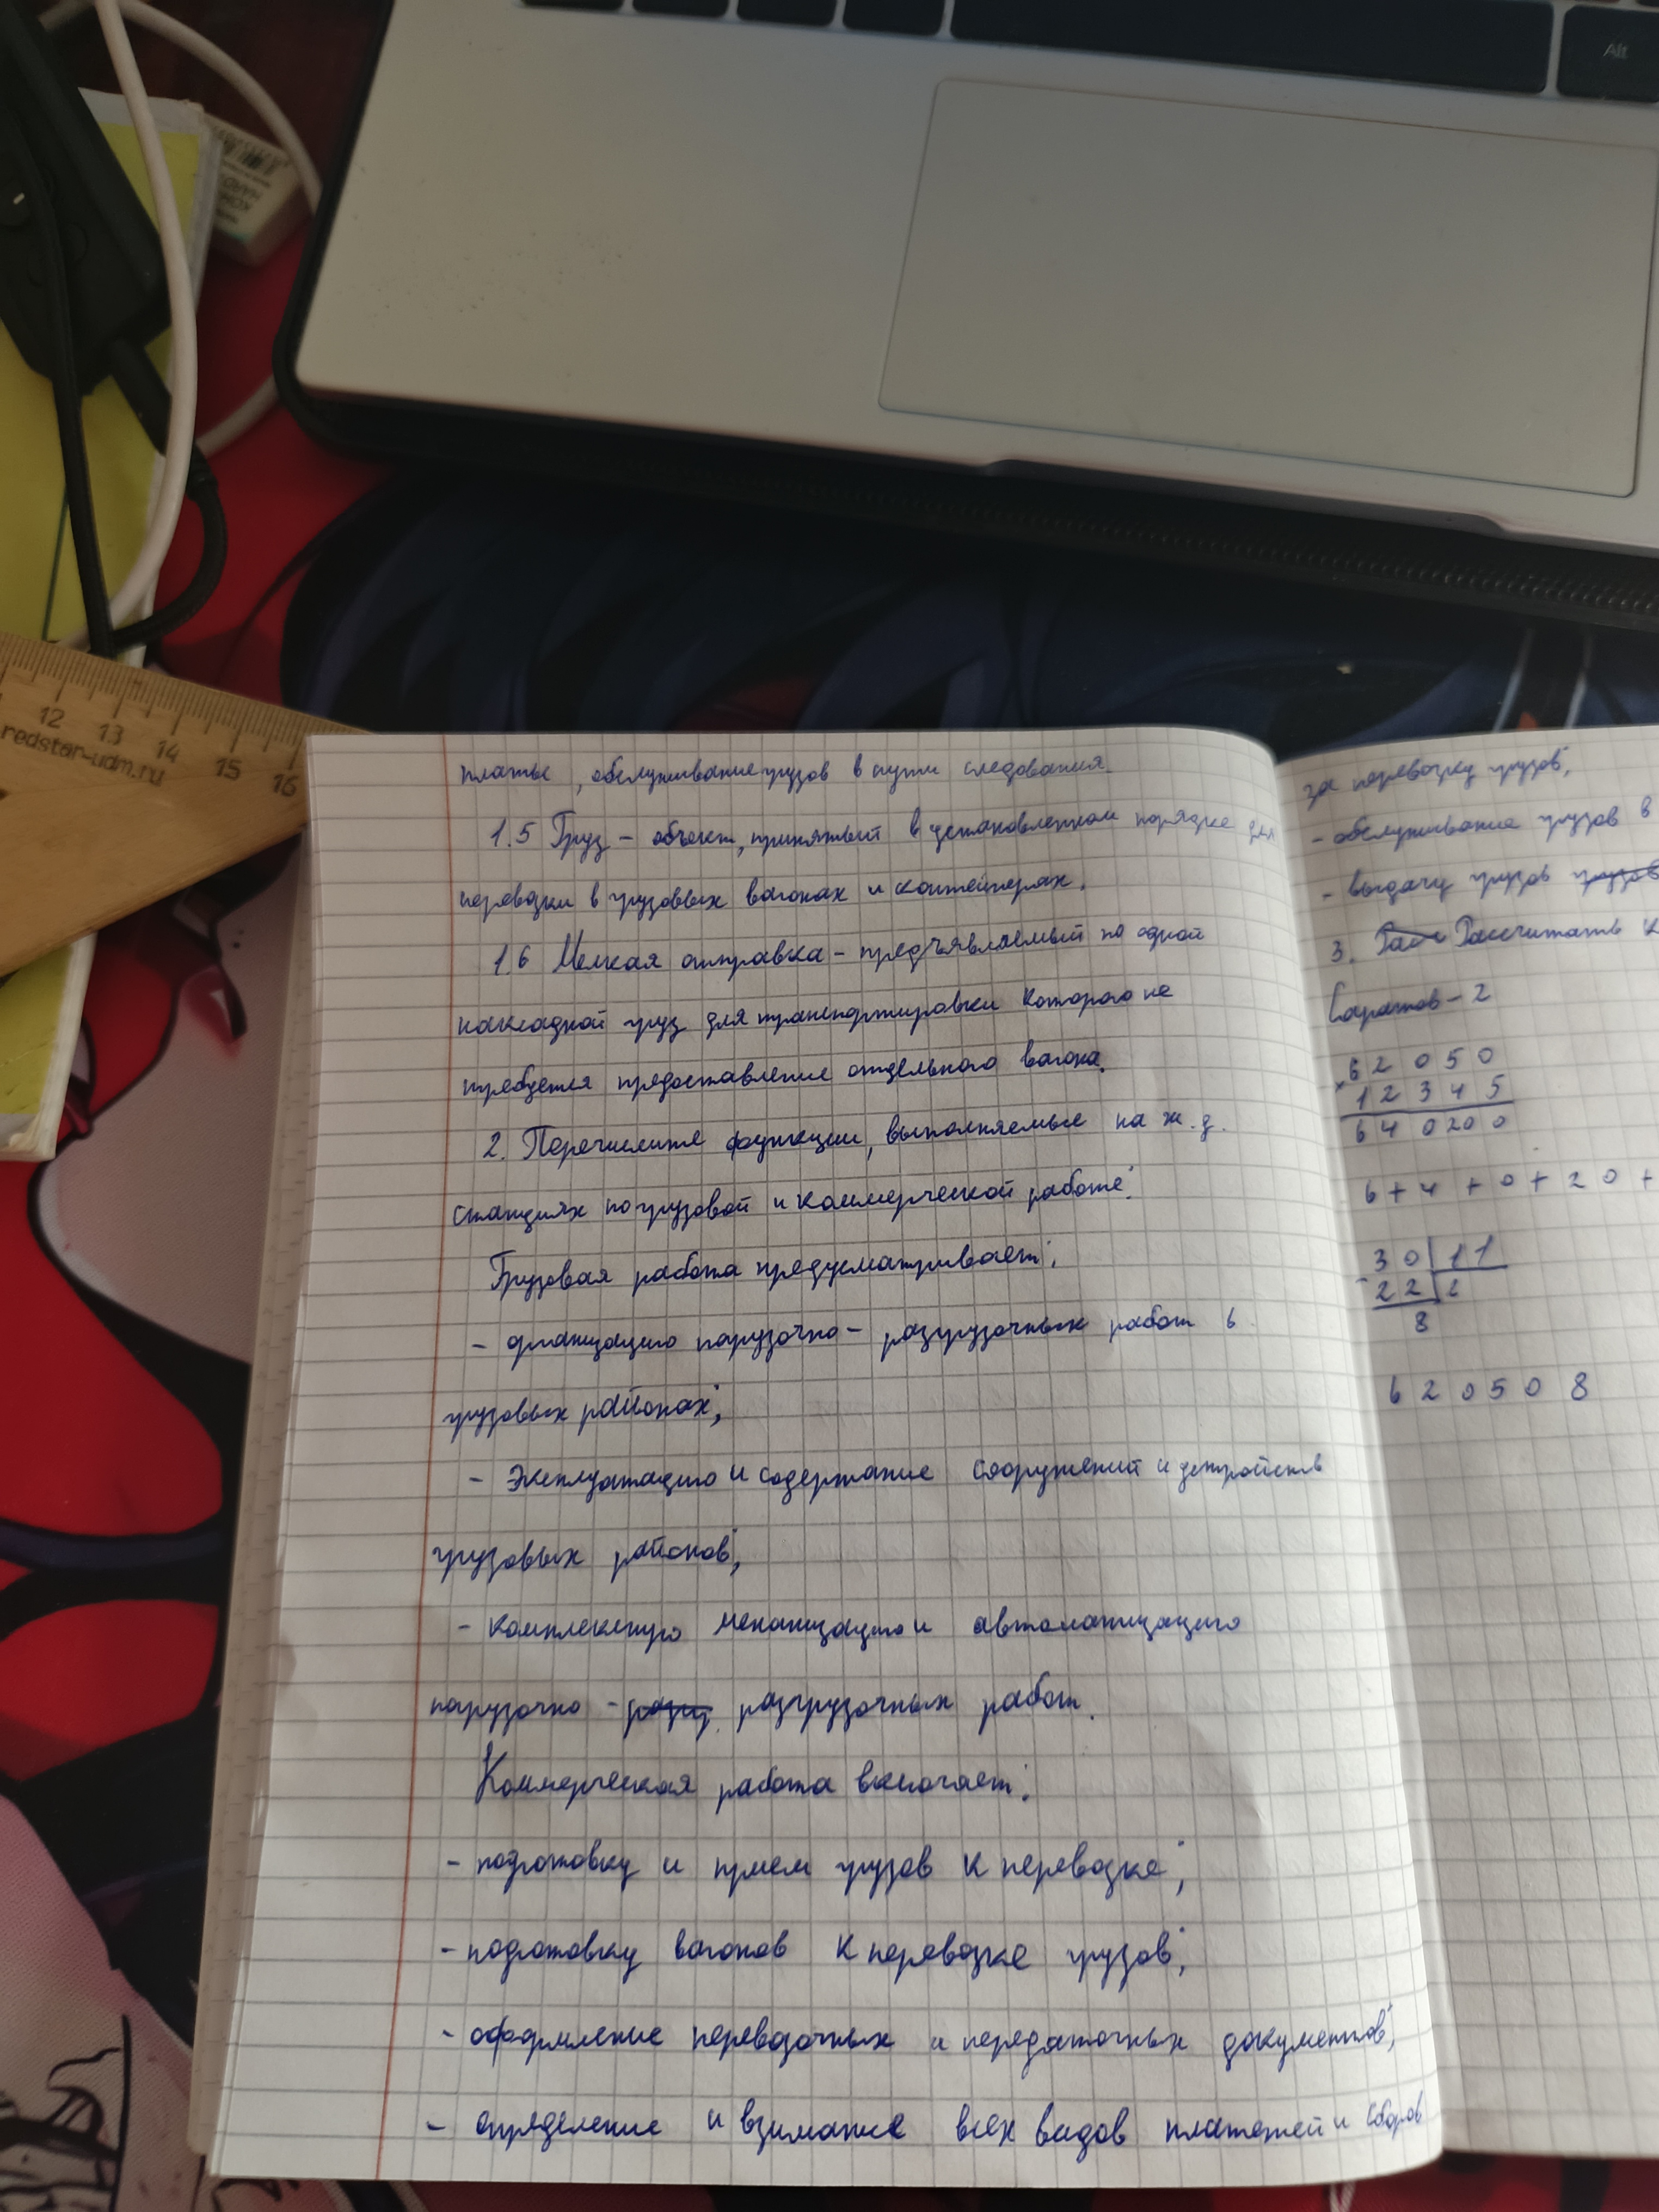 Alt
KOH-I
HARD
12 13 14 15 16
redstar-udm.ru
платы, обслуживание грузов в пути следования.
1.5 Груз – объект, принятый в установленном порядке для
перевозки в грузовых вагонах и контейнерах.
1.6 Мелкая отправка – предъявляемый по одной
накладной груз для транспортировки которого не
требуется предоставление отдельного вагона.
2. Перечислите функции, выполняемые на ж.д.
станциях по грузовой и коммерческой работе:
Грузовая работа предусматривает:
– организацию погрузочно – разгрузочных работ в
грузовых районах;
– эксплуатацию и содержание сооружений и устройств
грузовых районов;
– комплексную механизацию и автоматизацию
погрузочно – разгрузочных работ.
Коммерческая работа включает:
– подготовку и прием грузов к перевозке;
– подготовку вагонов к перевозке грузов;
– оформление перевозочных и передаточных документов;
– определение и взимание всех видов платежей и сборов
за перевозку грузов;
– обслуживание грузов в
– выдачу грузов грузов
3. Рассчитать к
Саратов – 2
62 0 5 0
× 1 2 3 4 5
6 4 0 20 0
6 + 4 + 0 + 20 +
30 | 11
- 22 | 2
8
6 2 0 5 0 8